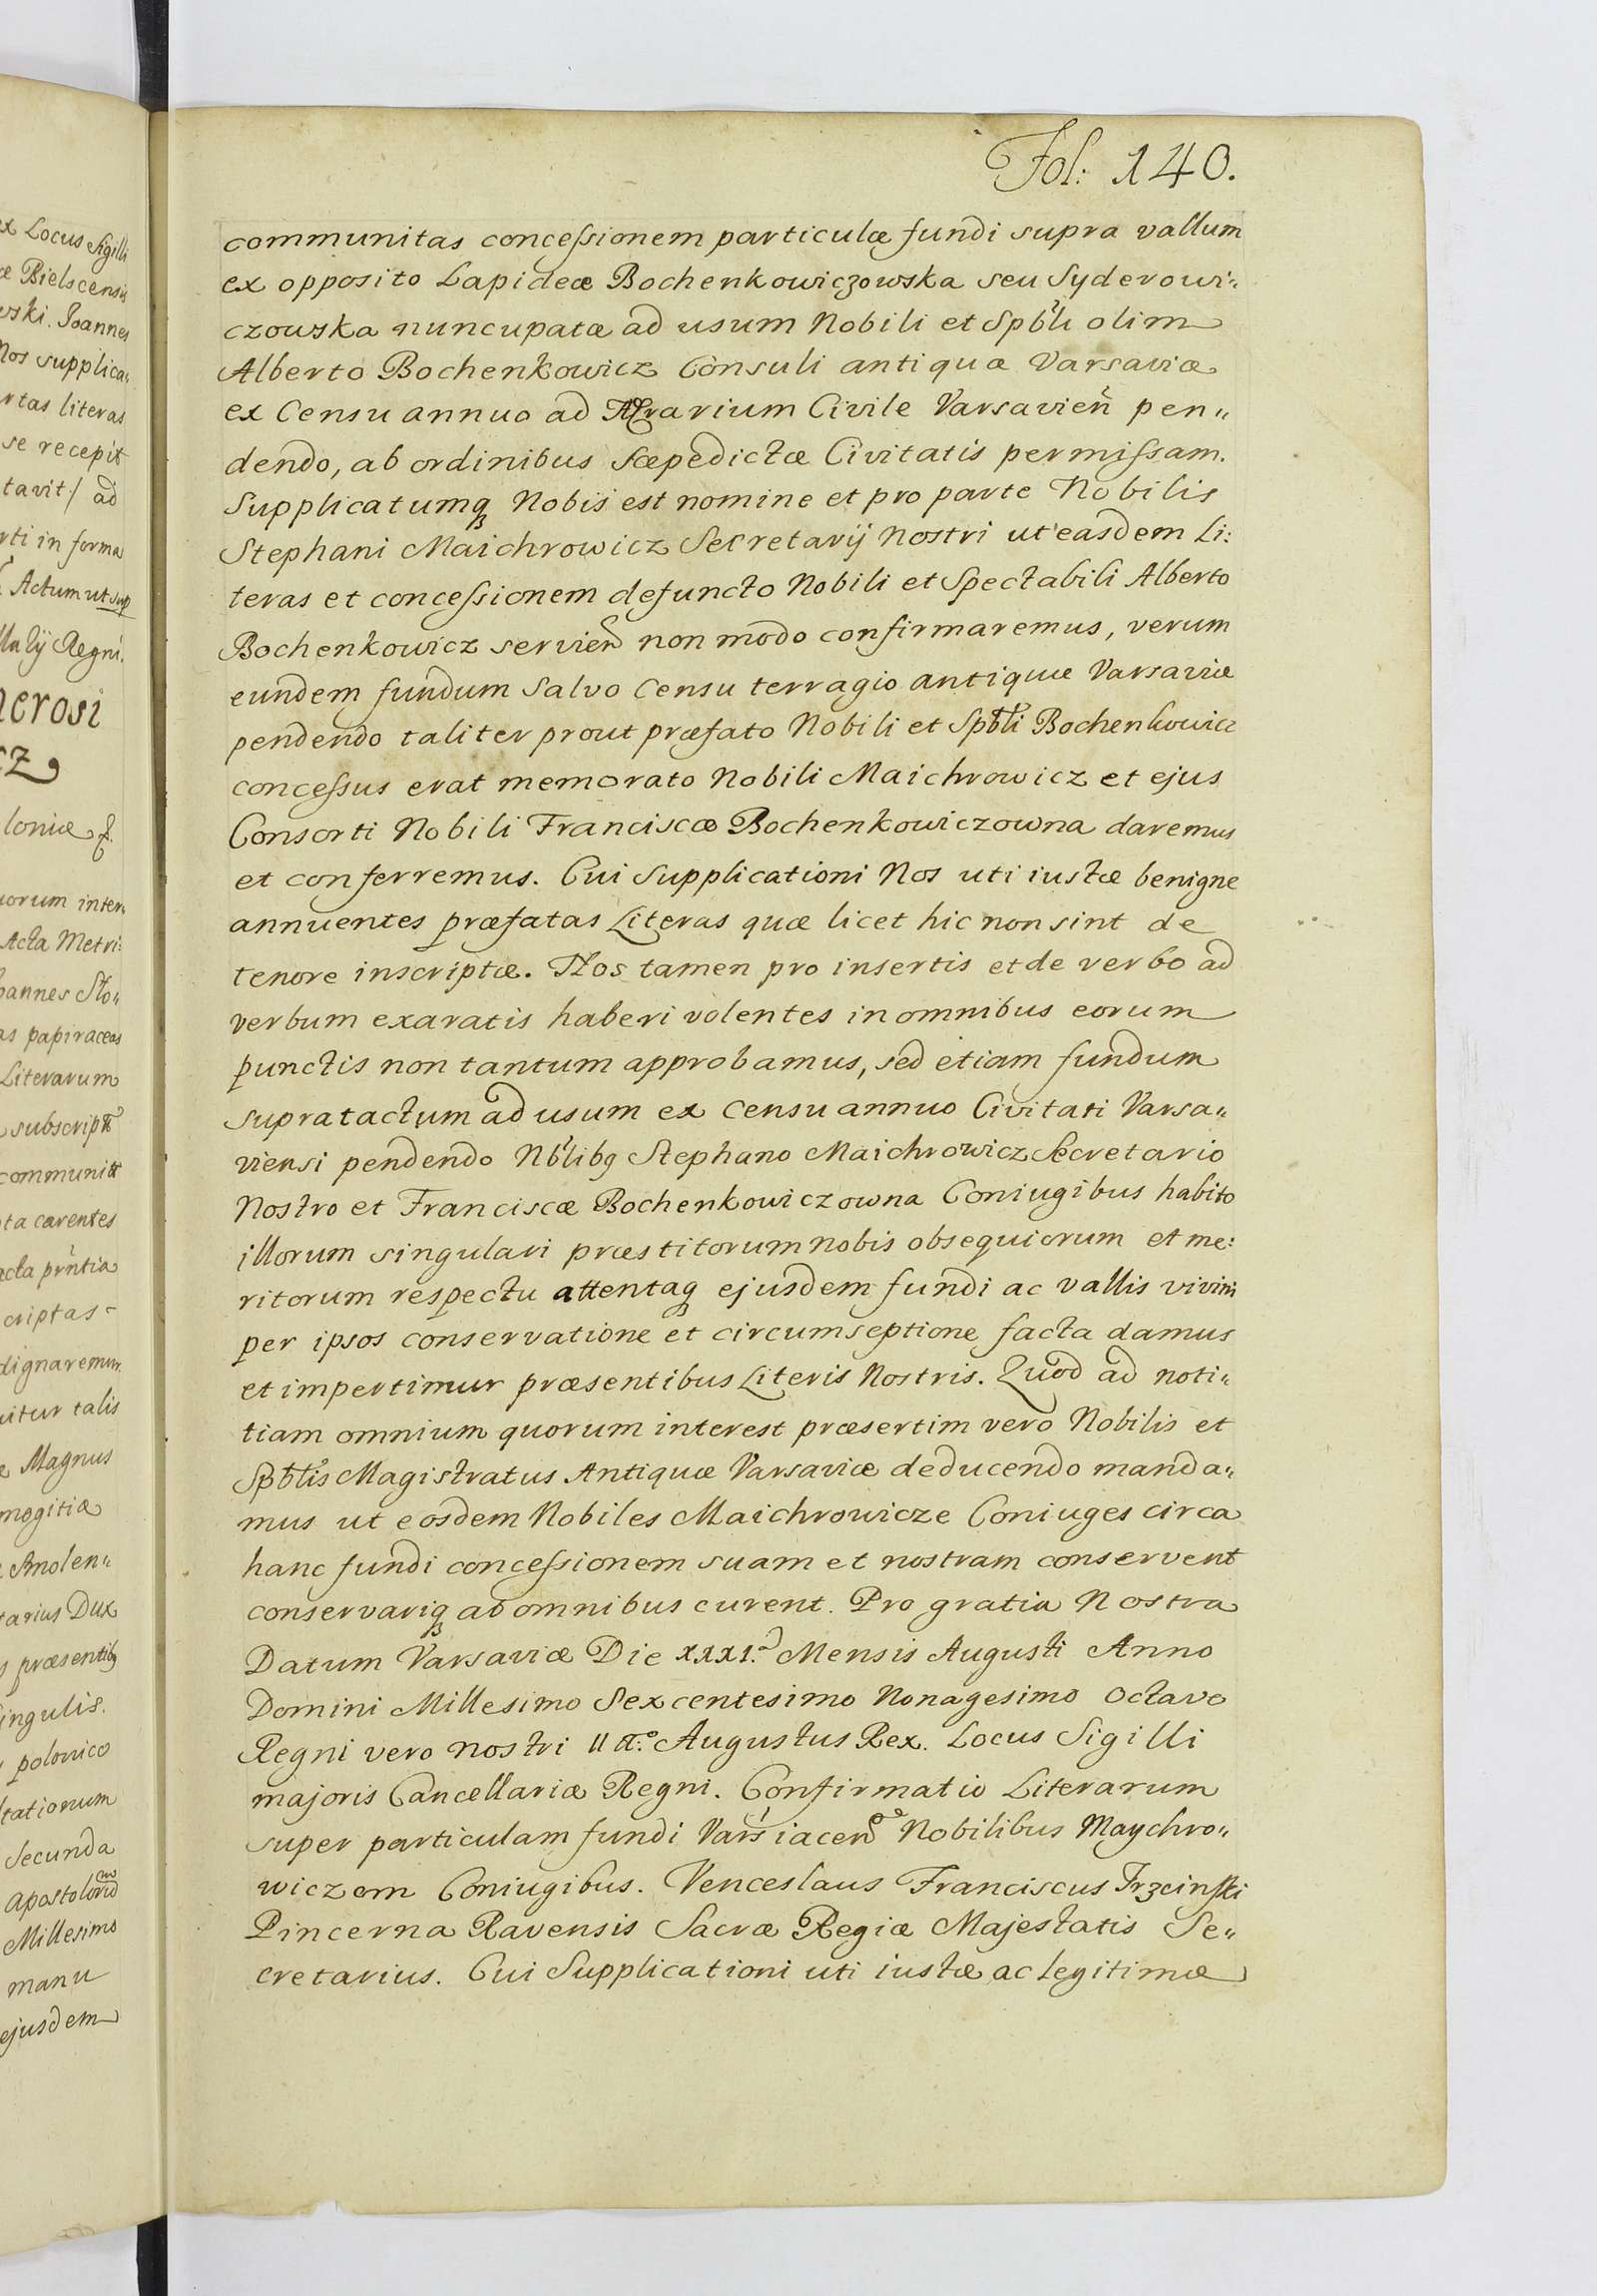 Fol: 140.
communitas concessionem particulæ fundi supra vallum
ex opposito Lapideæ Bochenkowiczowska seu Syderowi„
czowska nuncupatæ ad usum Nobili et Spbłi olim
Alberto Bochenkowicz Consuli antiquæ Varsaviæ
ex Censu annuo ad Ærarium Civile Varsavien̄ pen„
dendo, ab ordinibus sæpedictæ Civitatis permissam.
Supplicatumq Nobis est nomine et pro parte Nobilis
Stephani Maichrowicz Secretarij Nostri ut easdem Li:
teras et concessionem defuncto Nobili et Spectabili Alberto
Bochenkowicz servien̄ non modo confirmaremus, verum
eundem fundum salvo Censu terragio antiquæ Varsaviæ
pendendo taliter prout præfato Nobili et Spbłi Bochenkowicz
concessus erat memorato Nobili Maichrowicz et ejus
Consorti Nobili Franciscæ Bochenkowiczowna daremus
et conferremus. Cui Supplicationi Nos uti iustæ benigne
annuentes præfatas Literas quæ licet hic non sint de
tenore inscriptæ. Nos tamen pro insertis et de verbo ad
verbum exaratis haberi volentes in omnibus eorum
punctis non tantum approbamus, sed etiam fundum
supratactum ad usum ex Censu annuo Civitati Varsa„
viensi pendendo Nbłibq Stephano Maichrowicz Secretario
Nostro et Franciscæ Bochenkowiczowna Coniugibus habito
illorum singulari præstitorum nobis obsequiorum et me:
ritorum respectu attentaq ejusdem fundi ac vallis
per ipsos conservatione et circumseptione facta damus
et impertimur præsentibus Literis Nostris. Quod ad noti„
tiam omnium quorum interest præsertim vero Nobilis et
Spbłis Magistratus Antiquæ Varsaviæ deducendo manda„
mus ut eosdem Nobiles Maichrowicze Coniuges circa
hanc fundi concessionem suam et nostram conservent
conservariq ab omnibus curent. Pro gratia Nostra
Datum Varsaviæ Die XXXI. Mensis Augusti Anno
Domini Millesimo Sexcentesimo Nonagesimo Octavo
Regni vero nostri II Augustus Rex. Locus Sigilli
majoris Cancellariæ Regni. Confirmatio Literarum
super particulam fundi Vars iacen̄ Nobilibus Maychro„
wiczom Coniugibus. Venceslaus Franciscus Trzcinski
Pincerna Ravensis Sacræ Regiæ Majestatis Se„
cretarius. Cui Supplicationi uti iustæ ac legitimæ
ex Locus Sigilli
Bielscensis
Joannes
Nos supplica„
literas
se recepit
ad
in forma
Actum ut sup
Regni.
inter„
Acta Metri:
papiraceas
Literarum
subscript
carentes
talis
Magnus
Smolen„
Dux
polonico
Secunda
Millesimo
manu
ejusdem